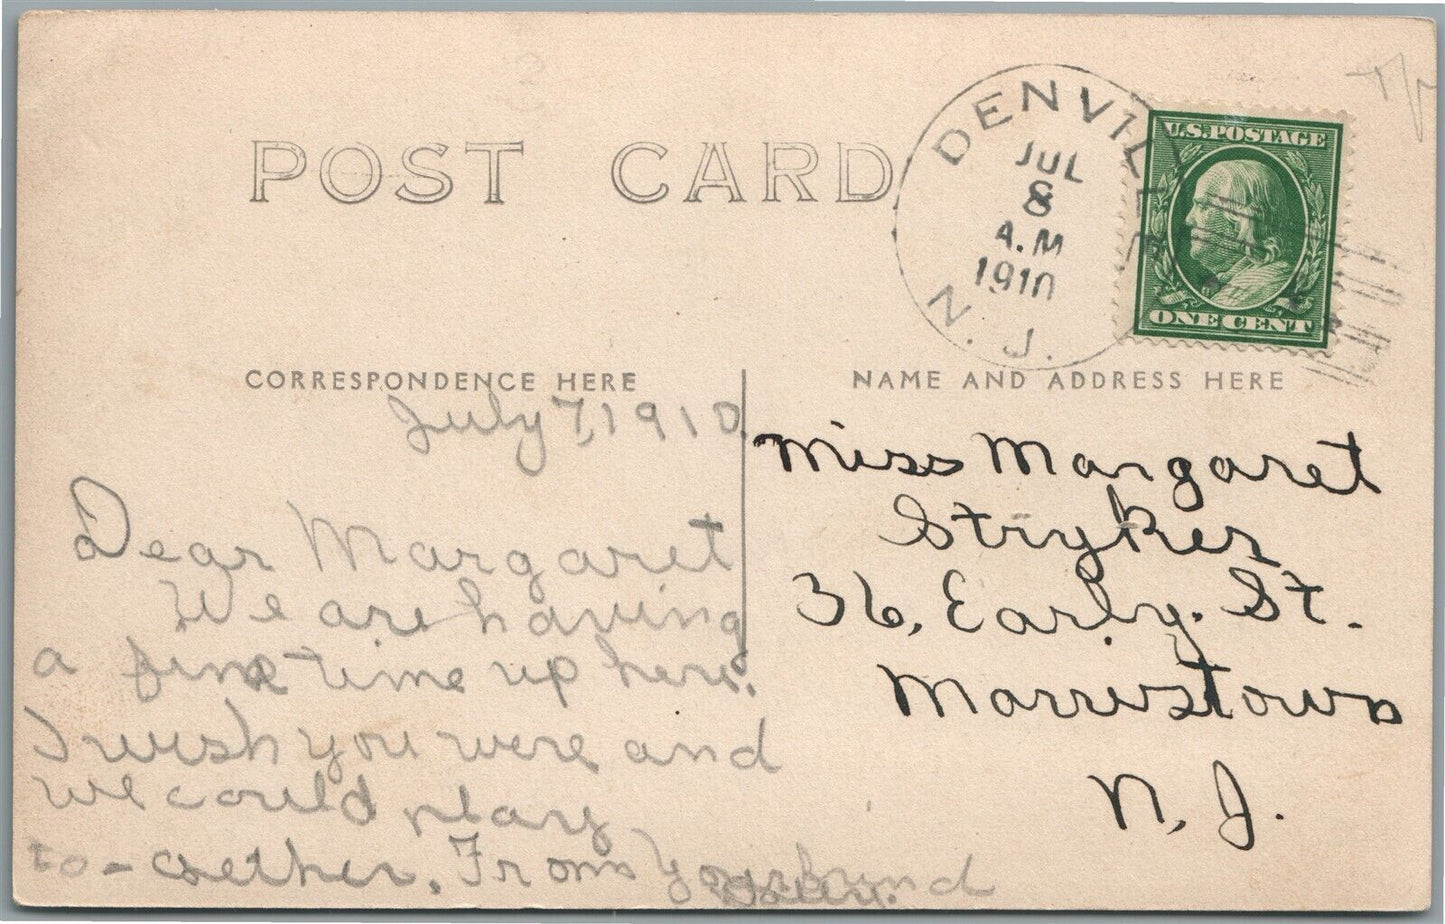 POST CARD
DENVILLE
JUL
8
A.M
1910
N. J.
U.S. POSTAGE
ONE CENT
CORRESPONDENCE HERE
July 7, 1910.
Dear Margaret
We are having
a fine time up here.
I wish you were and
we could play
to-gether. From Your friend
NAME AND ADDRESS HERE
Miss Margaret
Stryker
36, Early. St.
Morristown
N, J.